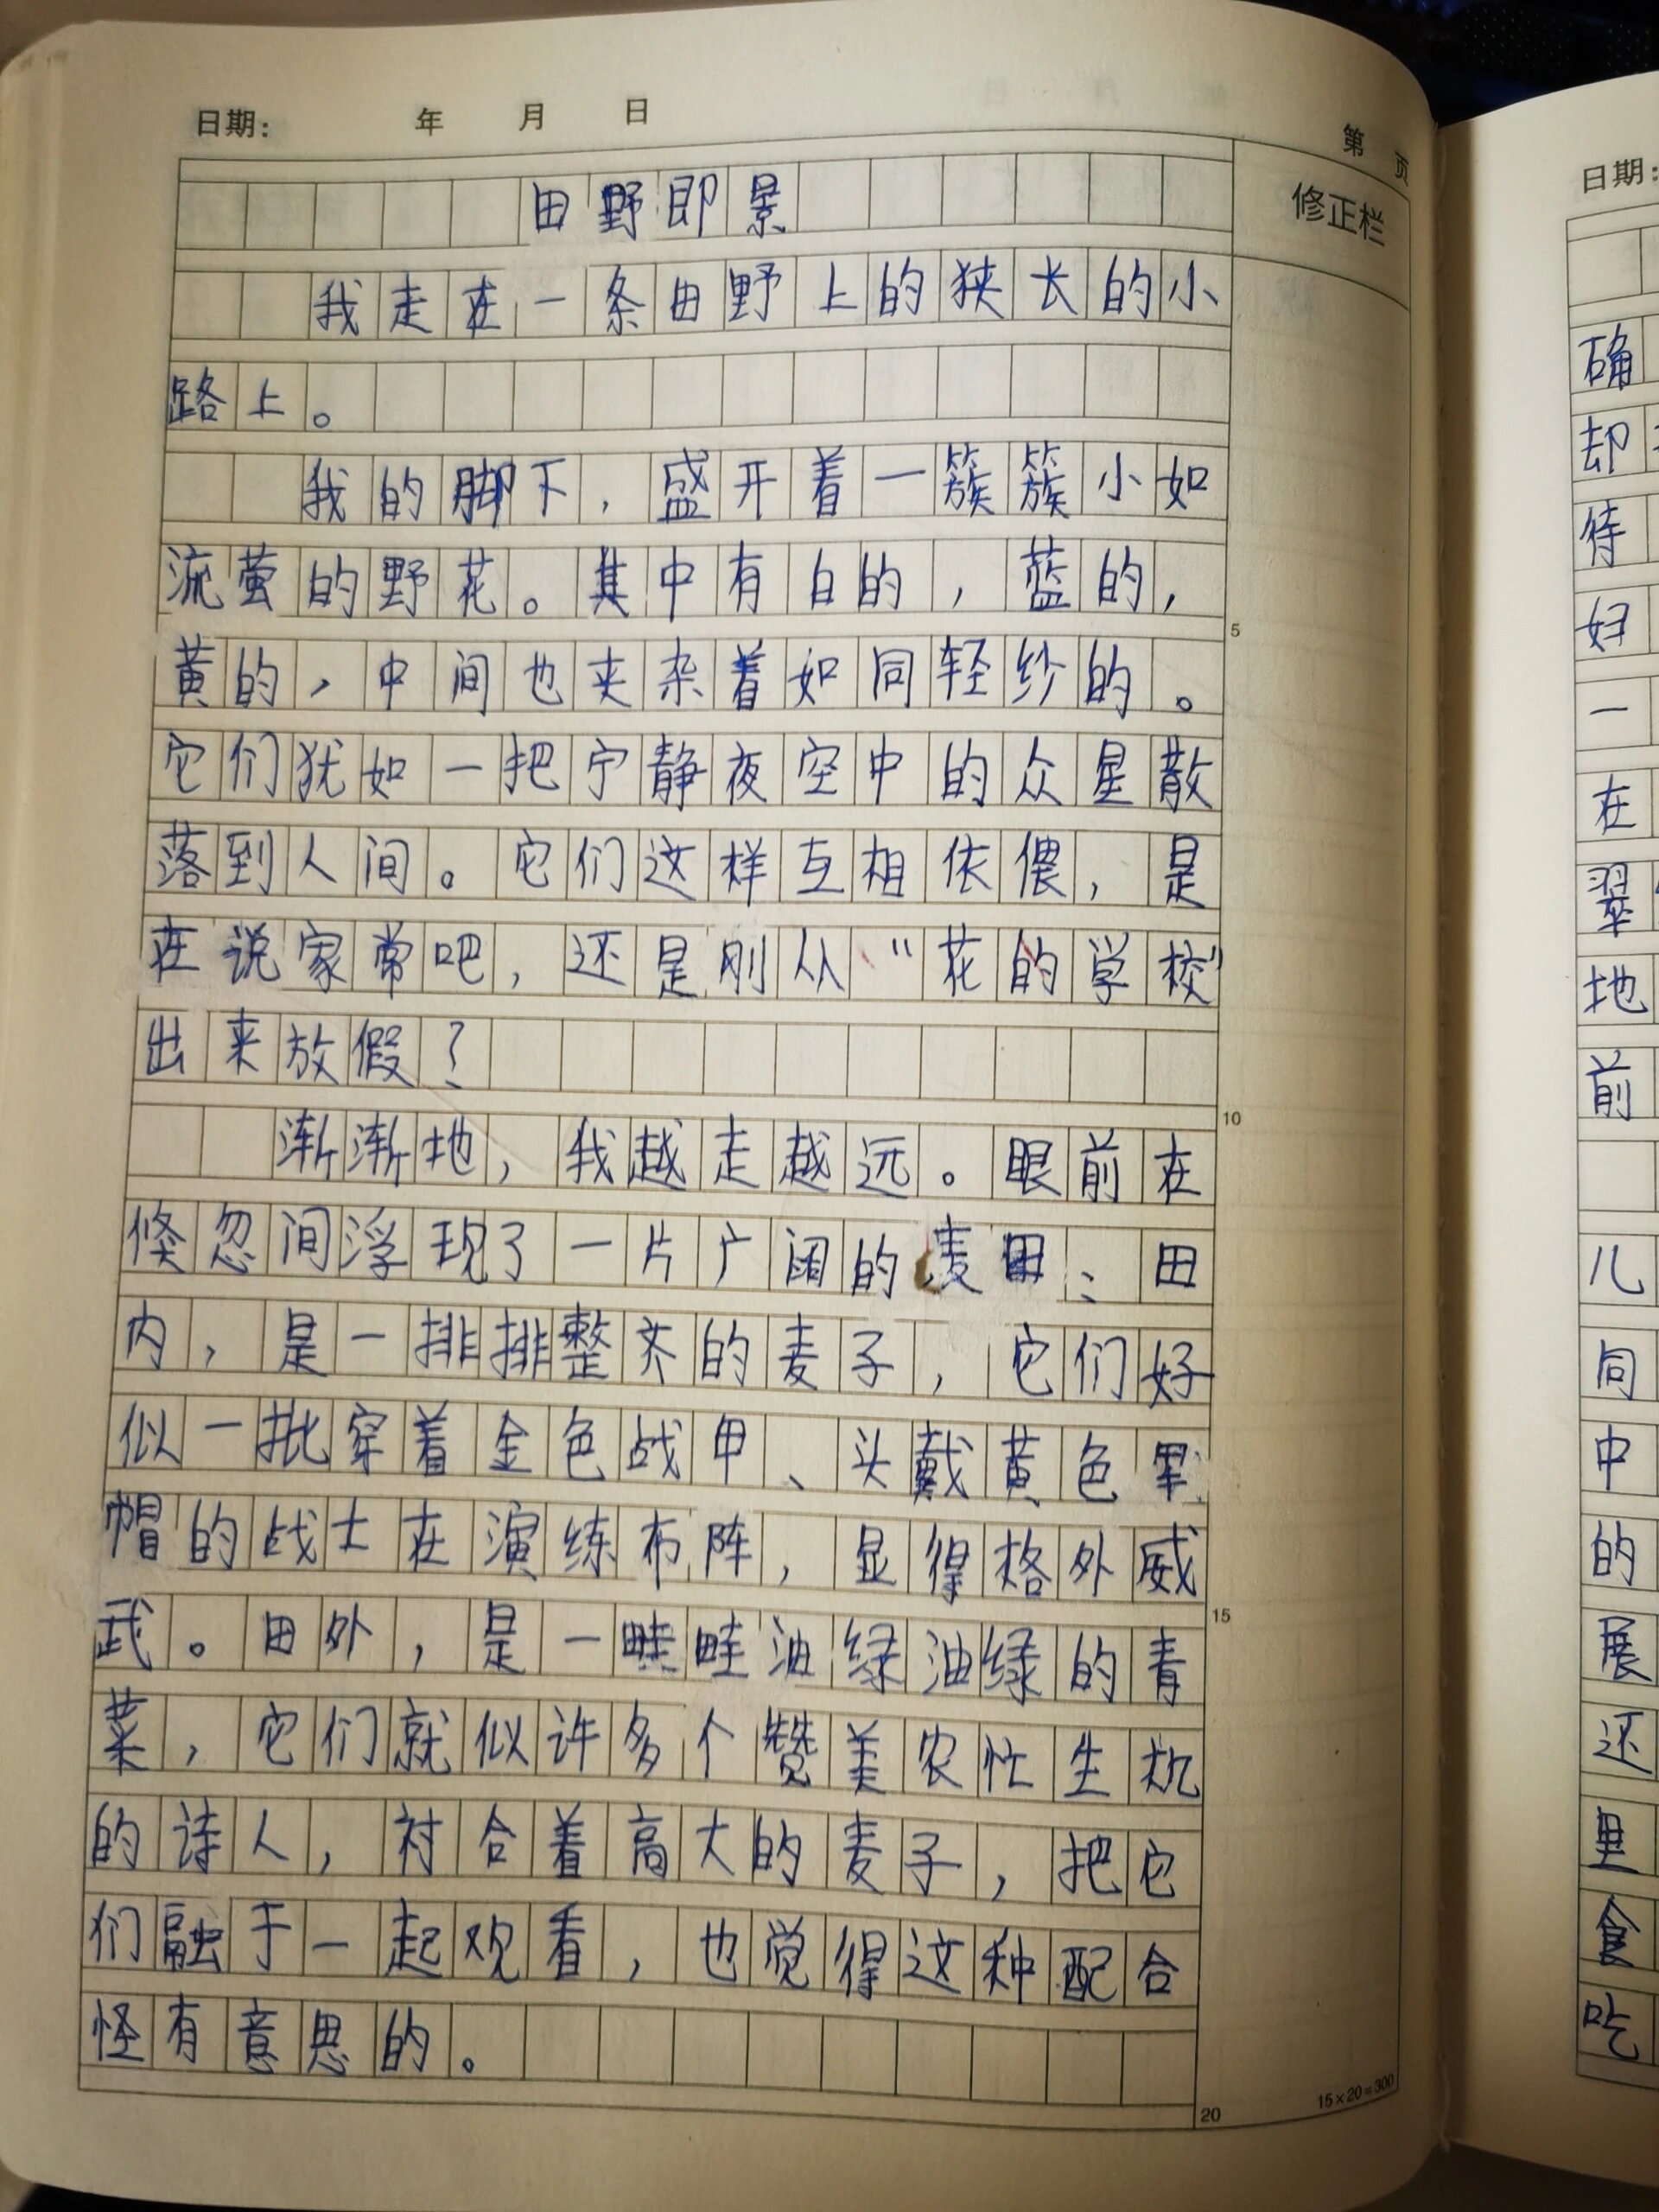 日期： 年 月 日
第 页
修正栏
田野即景
我走在一条田野上的狭长的小
路上。
我的脚下，盛开着一簇簇小如
流萤的野花。其中有白的，蓝的，
黄的，中间也夹杂着如同轻纱的。
它们犹如一把宁静夜空中的众星散
落到人间。它们这样互相依偎，是
在说家常吧，还是刚从“花的学校”
出来放假？
渐渐地，我越走越远。眼前在
倏忽间浮现了一片广阔的麦田、田
内，是一排排整齐的麦子，它们好
似一批穿着金色战甲、头戴黄色
帽的战士在演练布阵，显得格外威
武。田外，是一畦畦油绿油绿的青
菜，它们就似许多个赞美农忙生机
的诗人，衬合着高大的麦子，把它
们融于一起观看，也觉得这种配合
怪有意思的。
5
10
15
20
15×20=300
日期：
确
却
待
妇
一
在
翠
地
前
儿
同
中
的
展
还
里
食
吃